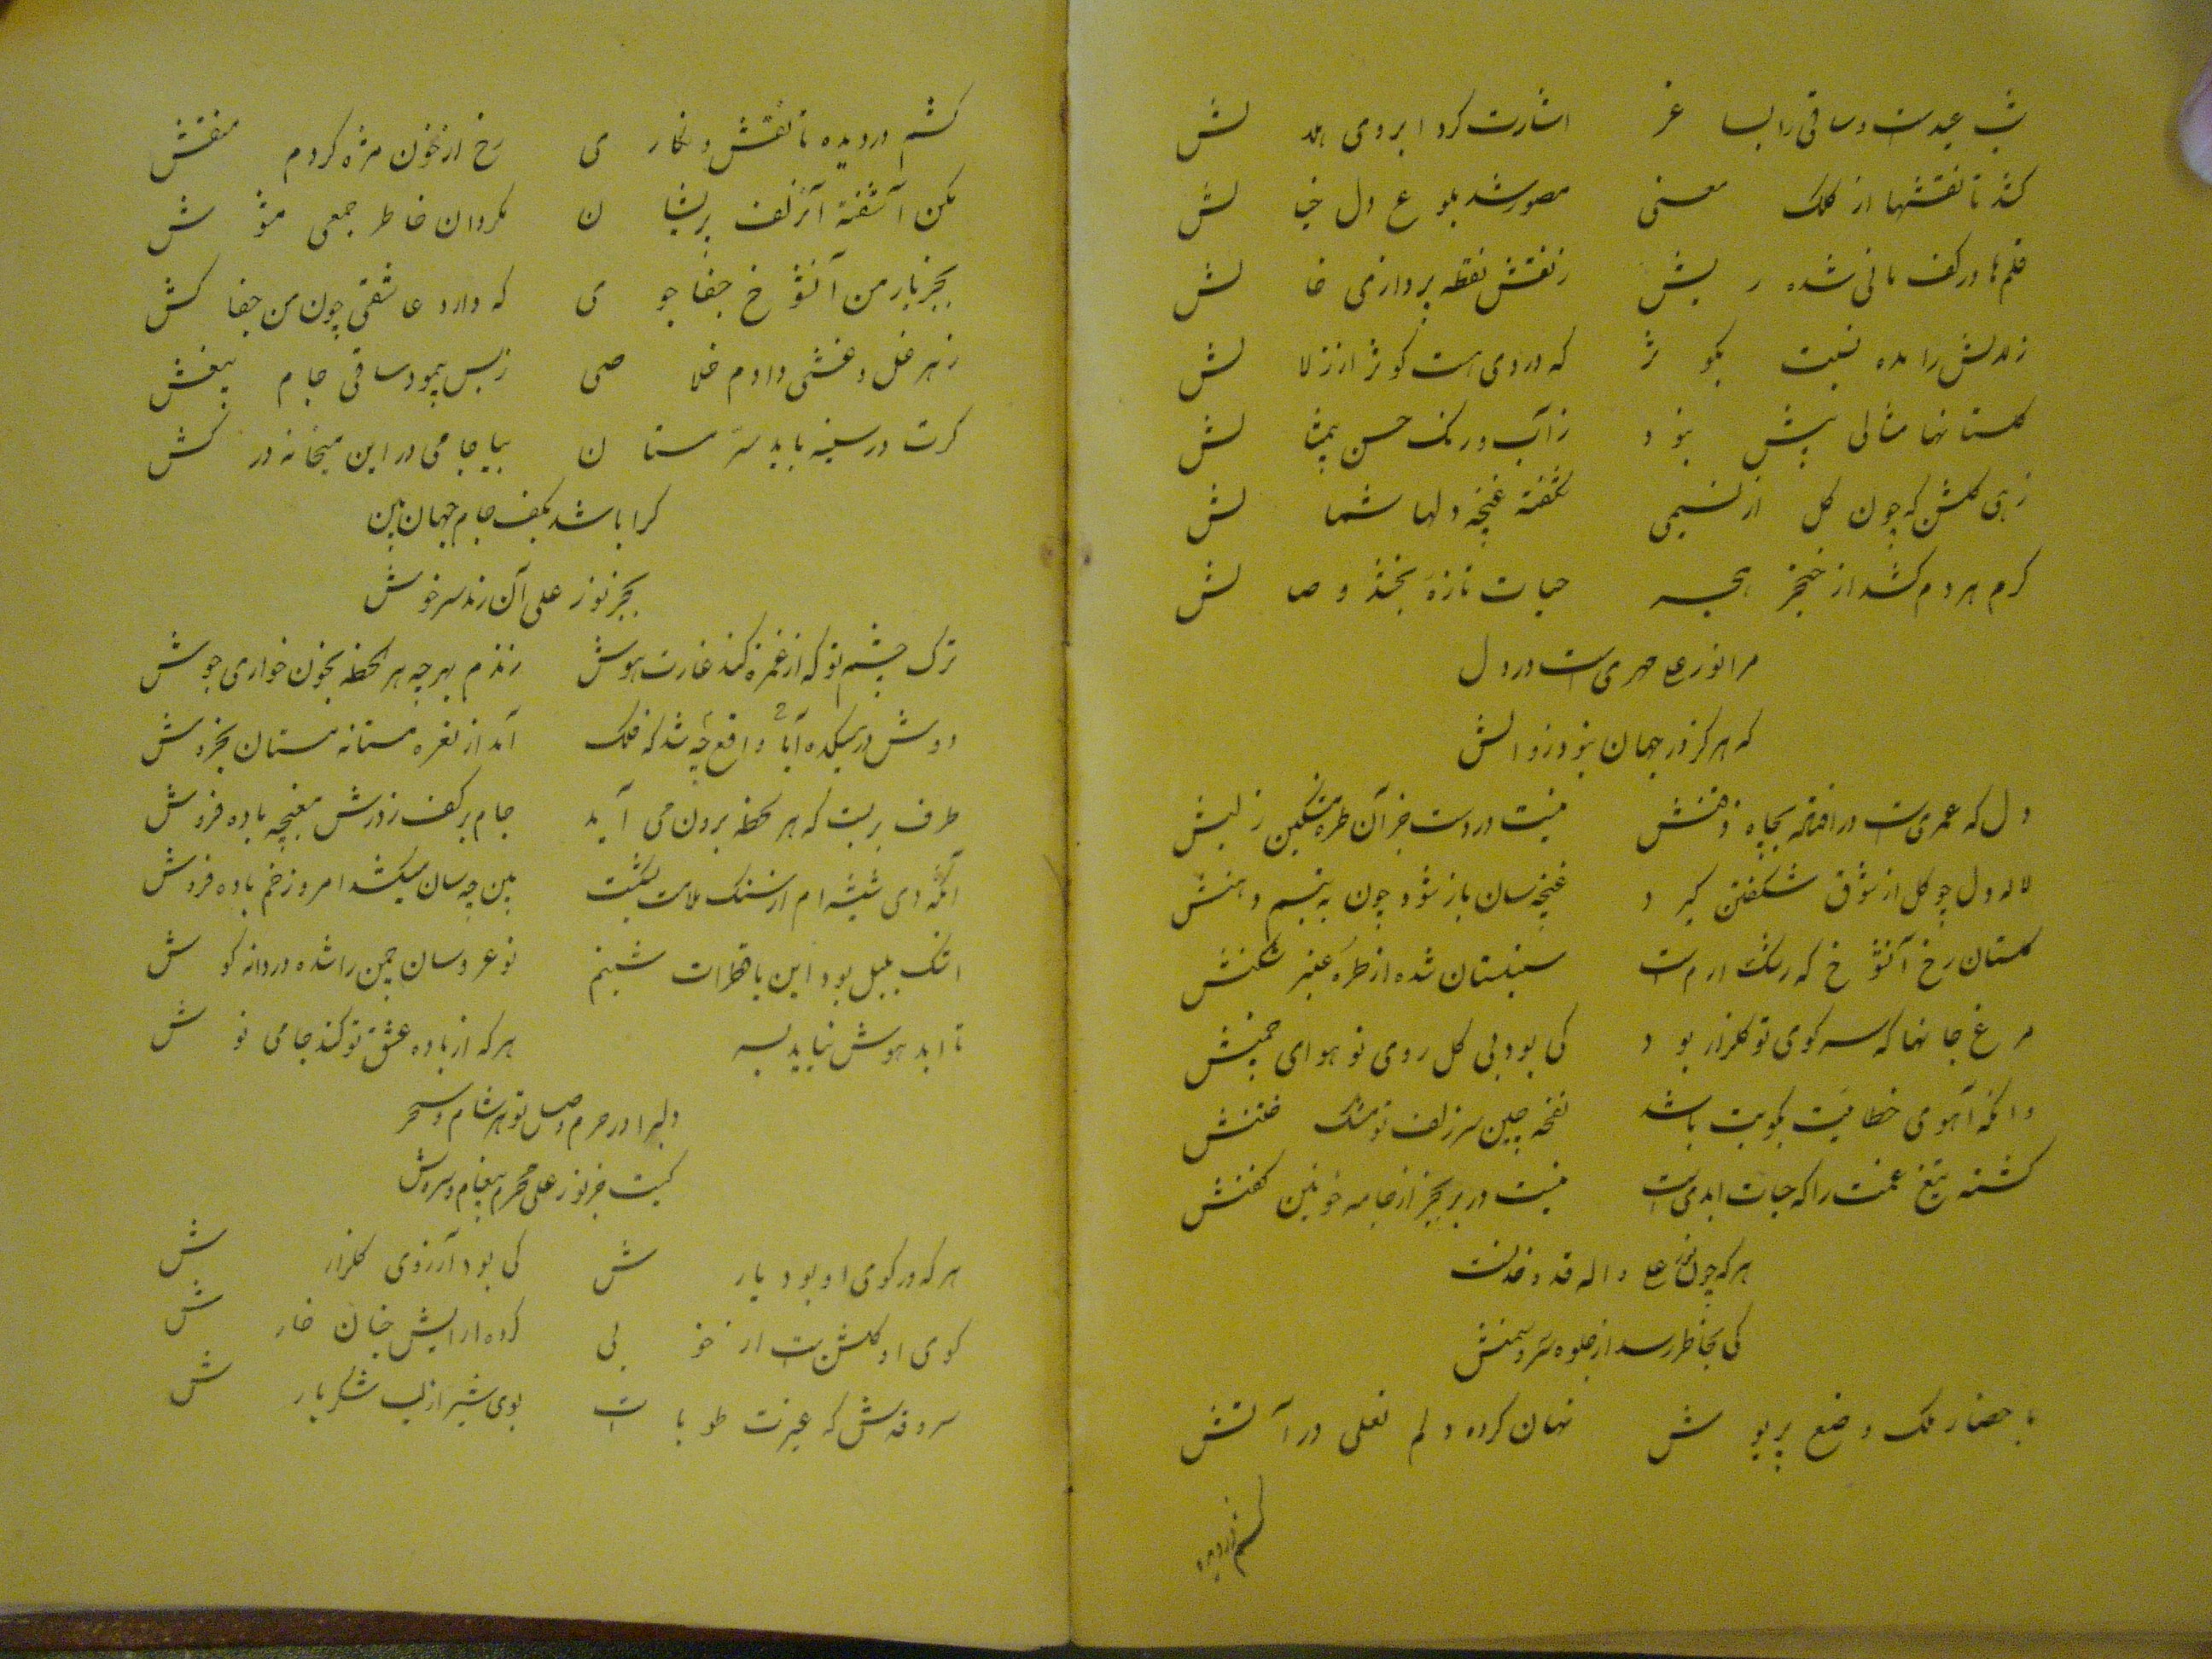 شب عیدست و ساقی را بساغر اشارت کرد ابروی هلالش
کشد تا نقشها از کلک معنی مصور شد بلوح دل خیالش
قلم‌ها در کف مانی شده ریش ز نقش نقطه پردازی خالش
زلالش را مده نسبت بکوثر که دردی است کوثر از زلالش
گلستانها مثالی پیش نبود ز آب و رنگ حسن بیمثالش
زهی گلشن که چون گل از نسیمی شگفته غنچه دلها شمالش
کرم هر دم کشد از خنجر هجر حیات تازه بخشد وصالش
مرا نورعلی مهری است در دل
که هرگز در جهان نبود زوالش
دل که عمری است در افتاده بچاه ذقنش نیست در دست جز آن طره مشکین رسنش
لاله دل چو گل از شوق شکفتن گیرد غنچه سان باز شود چون به تبسم دهنش
گلستان رخ آنشوخ که رشک ارم است سنبلستان شده از طره عنبر شکنش
مرغ جانها که سر کوی تو گلزار بود کی بود بی گل روی تو هوای چمنش
وانکه آهوی خطا نیست بکویت باشد نفحه چین سر زلف تو مشک ختنش
کشته تیغ غمت را که حیات ابدی است نیست در بر بجز از جامه خونین کفنش
هرکه چون نورعلی واله قد و خد تست
کی بخاطر رسد از جلوه سرو سمنش
با حضار ملک وضع پریوش نهان کرده دلم نعلی در آتش
کشم در دیده
کشم در دیده تا نقش و نگاری رخ از خون مژه کردم منقش
مکن آشفته آن زلف پریشان مگردان خاطر جمعی مشوش
بجز یار من آنشوخ جفا جوی که دارد عاشقی چون من جفا کش
ز هر غل و غشی دادم خلاصی ز بس پیمود ساقی جام بیغش
گرت در سینه باید سر مستان بیا جامی در این میخانه درکش
کرا باشد بکف جام جهان بین
بجز نور علی آن رند سرخوش
ترک چشم تو که از غمزه کند غارت هوش زندم بهر چه هر لحظه بخون خواری جوش
دوش در میکده آیا واقع چه شد که فلک آمد از نعره مستانه مستان بخروش
طرف بربست که هر لحظه برون می آید جام بر کف ز درش مغبچه باده فروش
آنکه دی شیشه‌ام از سنگ ملامت بشکست بین چه سان میکشد امروز خم باده فروش
اشک بلبل بود این یا قطرات شبنم نوعروسان چمن را شده دردانه گوش
تا ابد هوش نیاید بسر هرکه از باده عشق تو کند جامی نوش
دلبرا در حرم وصل تو هر شام و سحر
کیست جز نور علی محرم پیغام و سروش
هرکه در کوی او بود یارش کی بود آرزوی گلزارش
کوی او گلشن است از خوبی کرده آرایش جنان خارش
سرو قدش که غیرت طوباست بوی شیر از لب شکر بارش